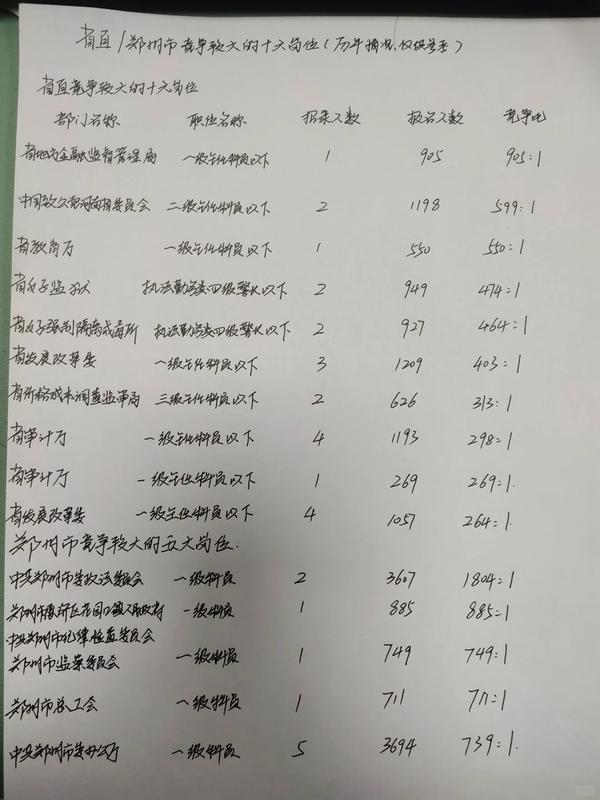 省直/郑州市竞争较大的十大岗位(历年情况,仅供参考)
省直竞争较大的十大岗位
部门名称 职位名称 招录人数 报名人数 竞争比
省地方金融监督管理局 一级主任科员以下 1 905 905:1
中国致公党河南省委员会 二级主任科员以下 2 1198 599:1
省教育厅 一级主任科员以下 1 550 550:1
省女子监狱 执法勤务类四级警长以下 2 949 474:1
省女子强制隔离戒毒所 执法勤务类四级警长以下 2 927 464:1
省发展改革委 一级主任科员以下 3 1209 403:1
省价格成本调查监审局 三级主任科员以下 2 626 313:1
省审计厅 一级主任科员以下 4 1193 298:1
省审计厅 一级主任科员以下 1 269 269:1.
省发展改革委 一级主任科员以下 4 1057 264:1.
郑州市竞争较大的五大岗位.
中共郑州市委政法委员会 一级科员 2 3607 1804:1
郑州市惠济区花园口镇人民政府 一级科员 1 885 885:1
中共郑州市纪律检查委员会
郑州市监察委员会 一级科员 1 749 749:1
郑州市总工会 一级科员 1 711 711:1
中共郑州市委办公厅 一级科员 5 3694 739:1.